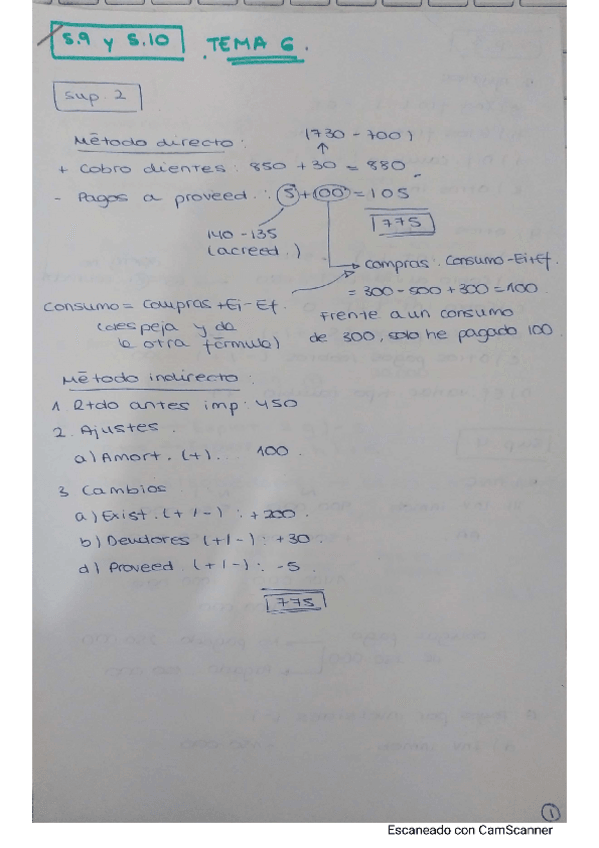 S.9 y S.10 TEMA 6.
Sup. 2
Método directo:
(730 - 700)
+ Cobro clientes: 850 + 30 = 880.
- Pagos a proveed.: 5 + 100 = 105
775
140 - 135
(acreed.)
compras: Consumo - Ei + Ef.
= 300 - 500 + 300 = 100.
Consumo = Compras + Ei - Ef.
(despeja y da
la otra fórmula)
Frente a un consumo
de 300, solo he pagado 100.
Método indirecto:
1 Rtdo antes imp: 450
2. Ajustes.
a) Amort. (+)... 100.
3 Cambios
a) Exist. (+/-): +200.
b) Deudores (+/-): +30
d) Proveed. (+/-): -5.
775
1
Escaneado con CamScanner